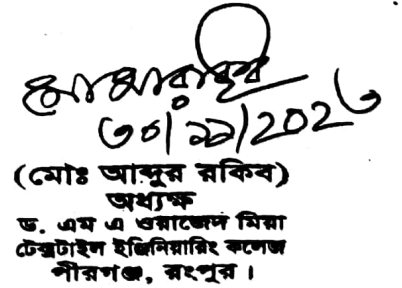 ৩০/১১/202৩
(মোঃ আব্দুর রকিব)
অধ্যক্ষ
ড. এম এ ওয়াজেদ মিয়া
টেক্সটাইল ইঞ্জিনিয়ারিং কলেজ
পীরগঞ্জ, রংপুর।